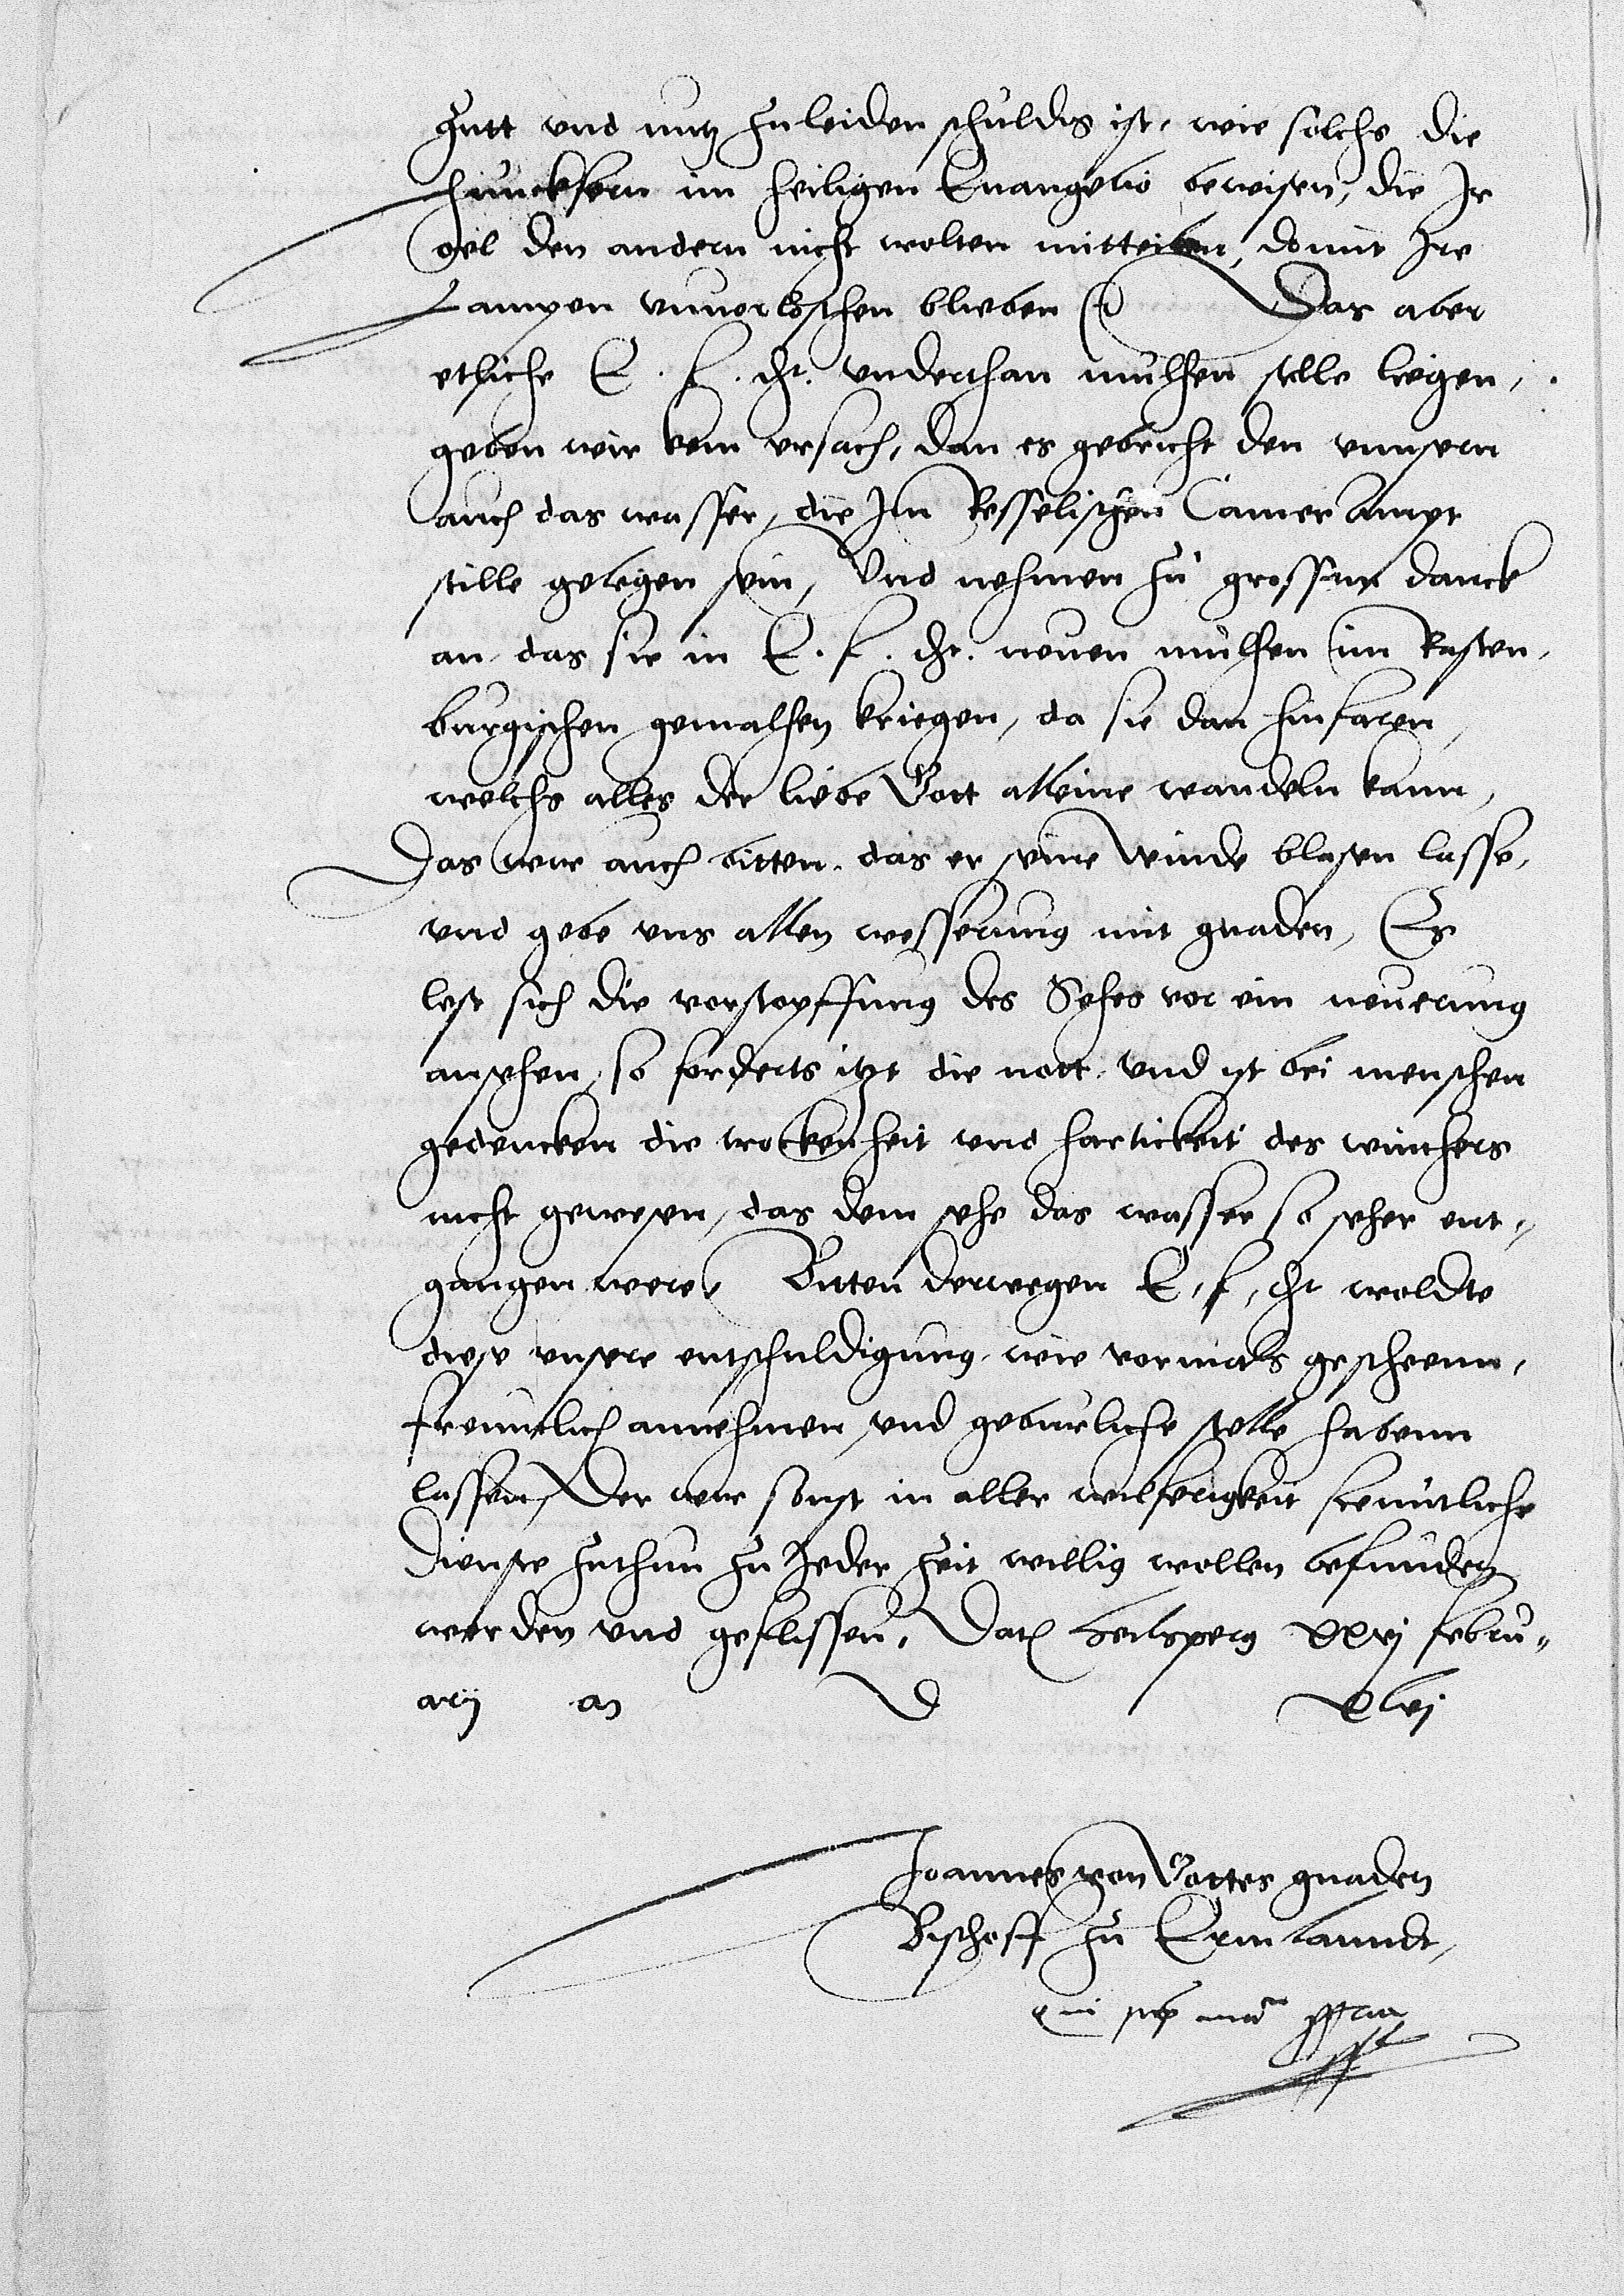 gutt und nutz zuleiden schuldig ist, wie solchs die
Junckfern im heiligen Euangelio beweisen, die Ir
oel den andern nicht wolten mitteilen, domit Ire
Lampen unuorloschen blieben Das aber
etliche E. f. dt. underthan mulhen stille liegen,
geben wir kein ursach, dan es gebricht den unnsern
auch das wasser, die Im Resselischen Camer Ampt
stille gelegen sein, Und nehmen zu grossem danck
an, das sie in E. f. dt. neuen mulhen im Rasten-
burgischen gemalhen kriegen, da sie dan hinfaren,
welchs alles der liebe Gott alleine wandeln kann,
Das wir auch bitten, das er seine winde blasen lasse,
und gebe uns allen wesserung mit gnaden, Es
lest sich die verstopffung des Sehes vor ein neuerung
ansehen, so forderts itzt die nott, und ist bei menschen
gedencken die trockenheit und hartickeit des winthers
nicht gewesen, das dem sehe das wasser so seher ent-
gangen were, Bitten derwegen E, f, dt woldte
diese unsere entschuldigung, wie vormals gescheenn,
freuntlich annehmen, und geburliche stelle habenn
lassen, Der wir sonst in aller wilferigkeit freuntliche
Dienste zuthun zu Jeder Zeit willig wollen befunden
werden und geflissen, Dat heilsperg xxvj febru-
arij an D xlvj
Joannes von Gottes gnaden
Bischoff zu Ermlanndt,